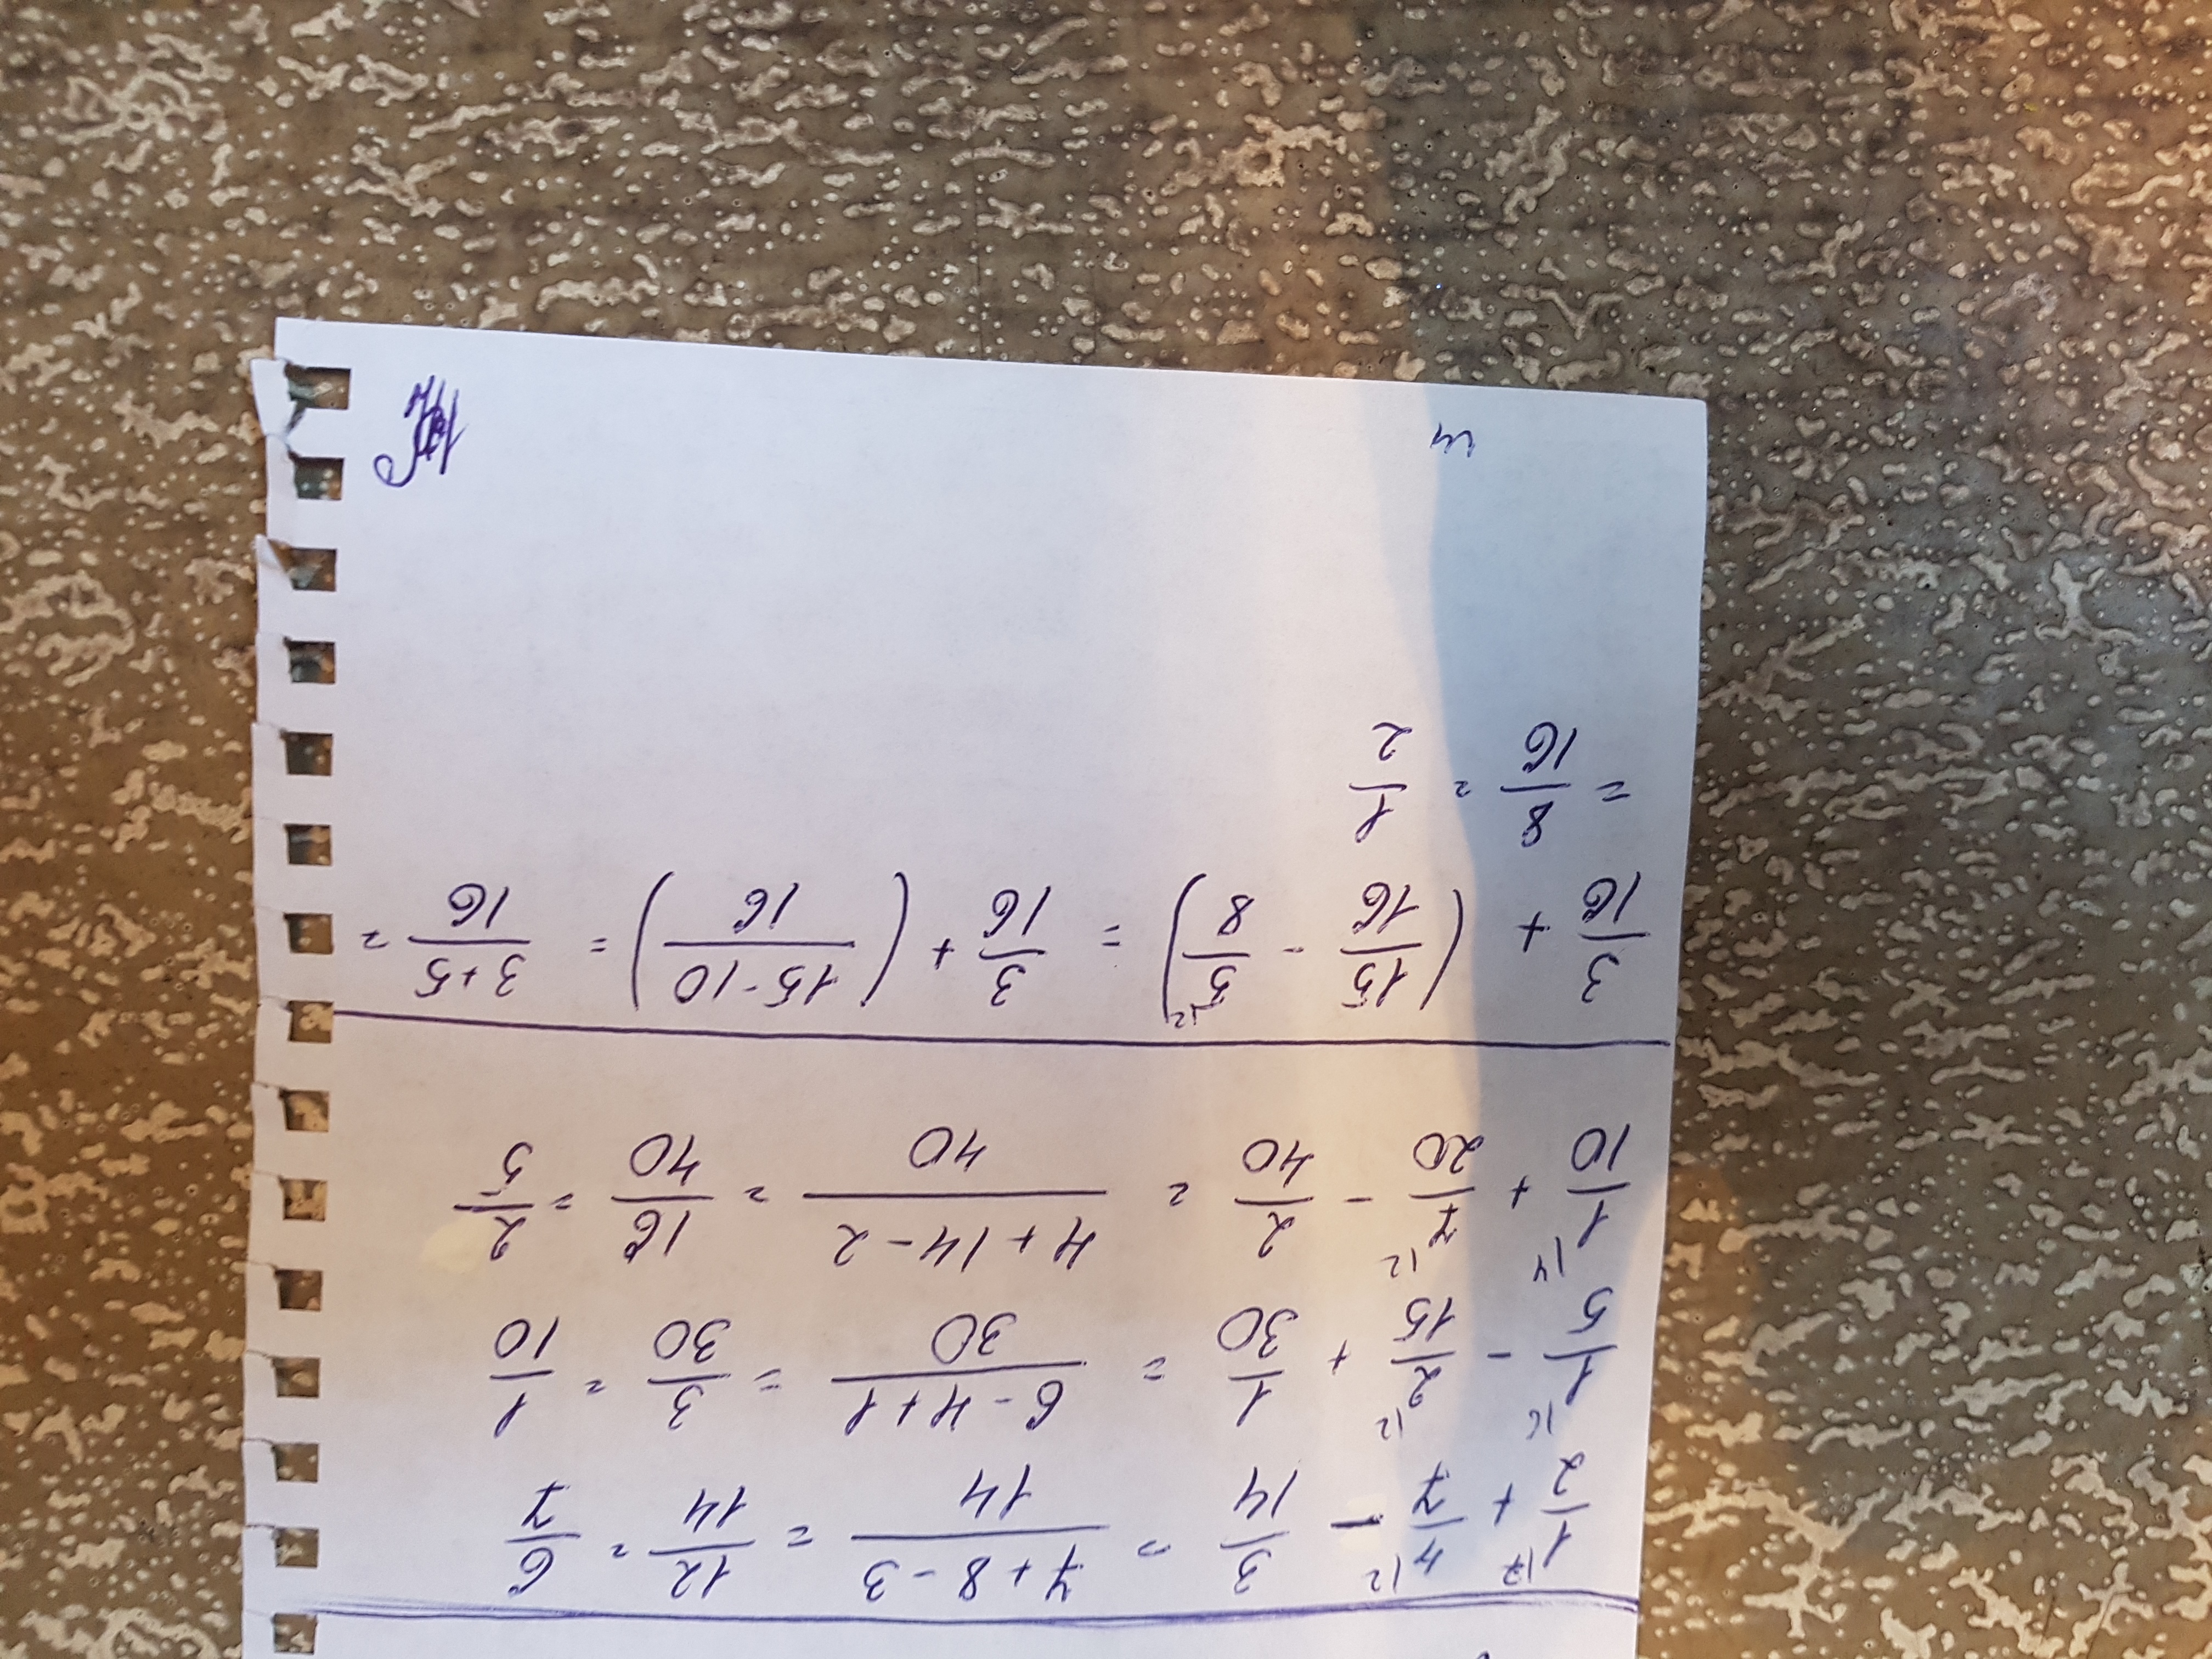 1/2 + 4/7 - 3/14 = (7 + 8 - 3)/14 = 12/14 = 6/7
1/5 - 2/15 + 1/30 = (6 - 4 + 1)/30 = 3/30 = 1/10
1/10 + 7/20 - 2/40 = (4 + 14 - 2)/40 = 16/40 = 2/5
3/16 + (15/16 - 5/8) = 3/16 + ((15 - 10)/16) = (3 + 5)/16 =
= 8/16 = 1/2